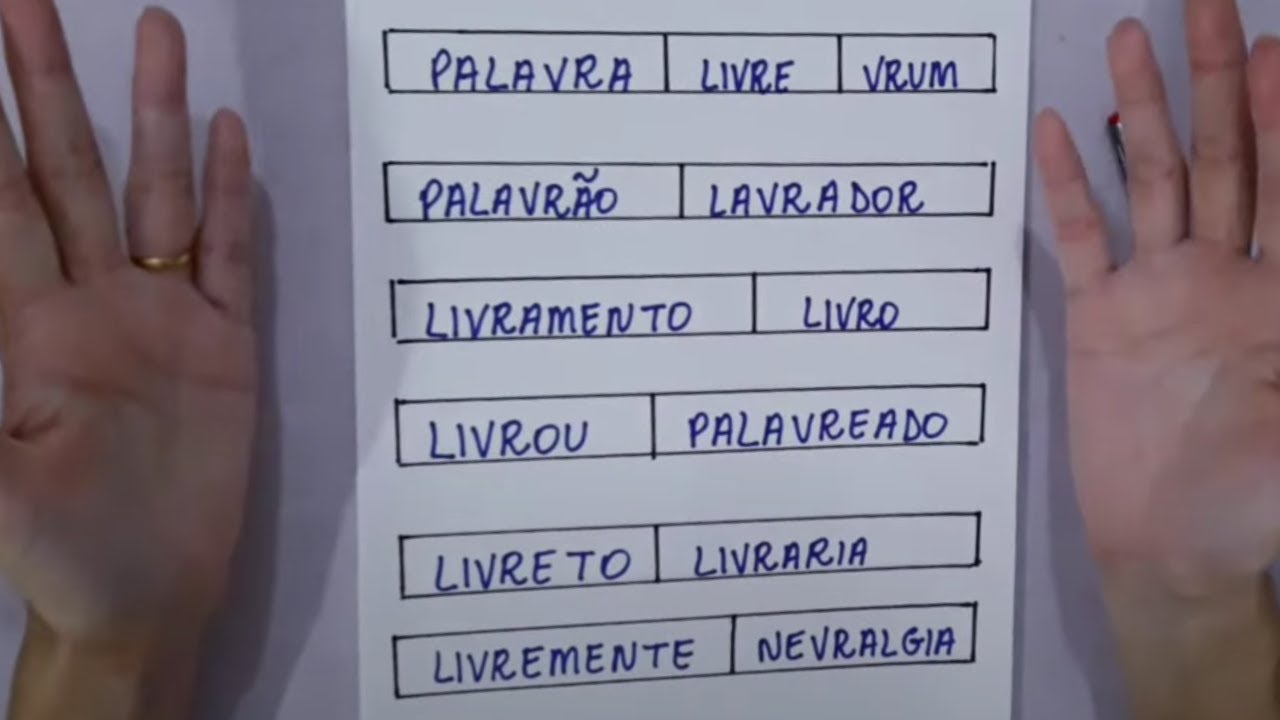 PALAVRA LIVRE VRUM
PALAVRÃO LAVRADOR
LIVRAMENTO LIVRO
LIVROU PALAVREADO
LIVRETO LIVRARIA
LIVREMENTE NEVRALGIA